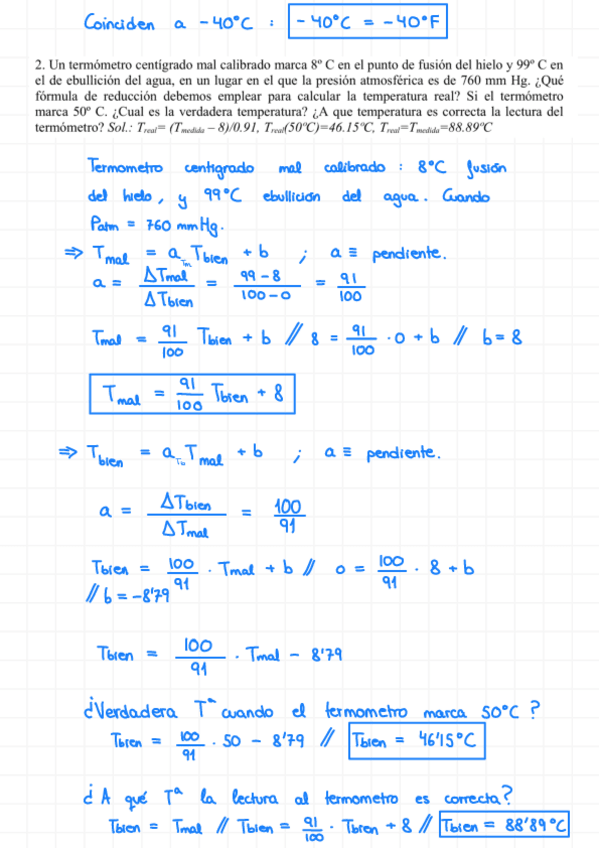 Coinciden a -40°C : -40°C = -40°F
2. Un termómetro centígrado mal calibrado marca 8º C en el punto de fusión del hielo y 99º C en
el de ebullición del agua, en un lugar en el que la presión atmosférica es de 760 mm Hg. ¿Qué
fórmula de reducción debemos emplear para calcular la temperatura real? Si el termómetro
marca 50º C. ¿Cual es la verdadera temperatura? ¿A que temperatura es correcta la lectura del
termómetro? Sol.: Treal= (Tmedida – 8)/0.91, Treal(50ºC)=46.15ºC, Treal=Tmedida=88.89ºC
Termometro centigrado mal calibrado : 8°C fusión
del hielo, y 99°C ebullición del agua. Cuando
Patm = 760 mmHg.
⇒ Tmal = a Tm Tbien + b ; a ≡ pendiente.
a = ΔTmal / ΔTbien = 99-8 / 100-0 = 91 / 100
Tmal = 91/100 Tbien + b // 8 = 91/100 · 0 + b // b = 8
Tmal = 91/100 Tbien + 8
⇒ Tbien = a Tb Tmal + b ; a ≡ pendiente.
a = ΔTbien / ΔTmal = 100 / 91
Tbien = 100/91 · Tmal + b // 0 = 100/91 · 8 + b
// b = -8'79
Tbien = 100/91 · Tmal - 8'79
¿Verdadera Tª cuando el termometro marca 50°C ?
Tbien = 100/91 · 50 - 8'79 // Tbien = 46'15°C
¿ A qué Tª la lectura al termometro es correcta?
Tbien = Tmal // Tbien = 91/100 · Tbien + 8 // Tbien = 88'89°C